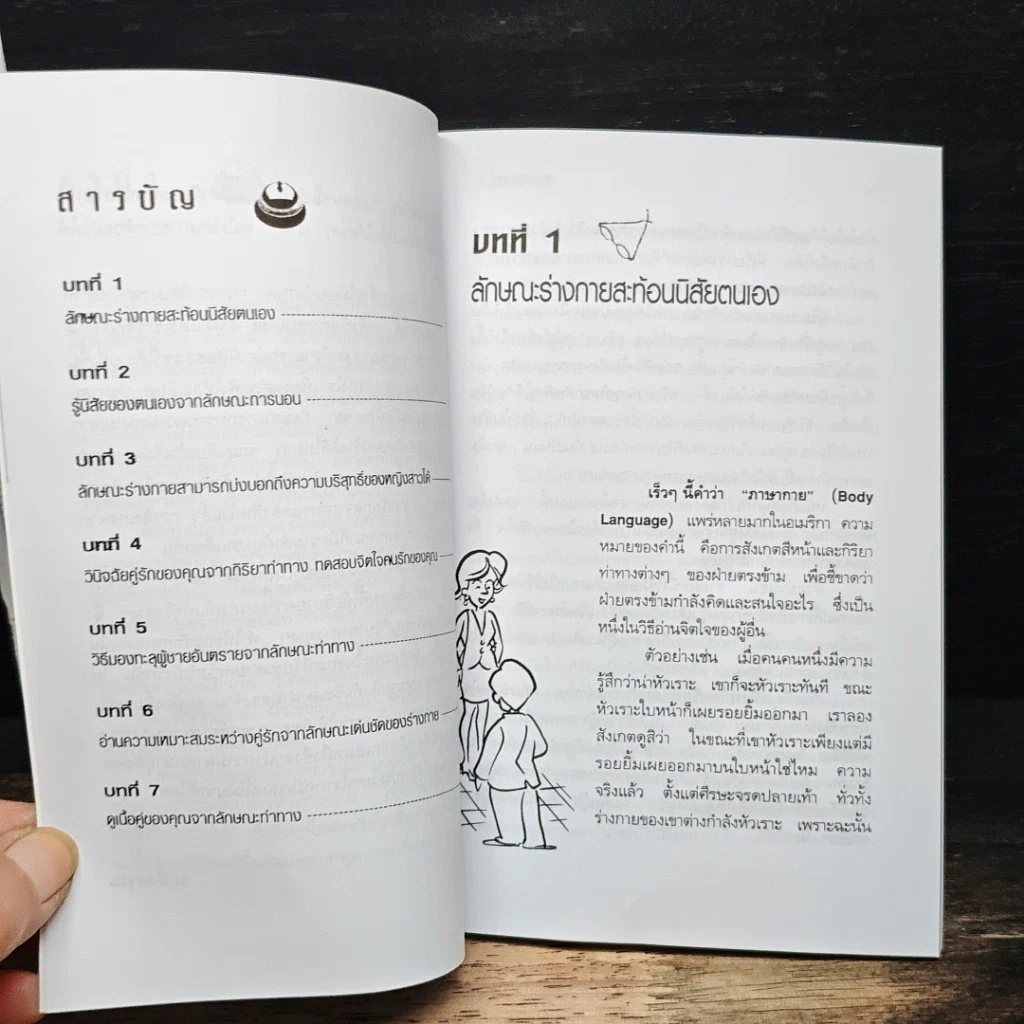 สารบัญ
บทที่ 1
ลักษณะร่างกายสะท้อนนิสัยตนเอง
บทที่ 2
รู้นิสัยของตนเองจากลักษณะการนอน
บทที่ 3
ลักษณะร่างกายสามารถบ่งบอกถึงความบริสุทธิ์ของหญิงสาวได้
บทที่ 4
วินิจฉัยคู่รักของคุณจากกิริยาท่าทาง ทดสอบจิตใจคนรักของคุณ
บทที่ 5
วิธีมองทะลุผู้ชายอันตรายจากลักษณะท่าทาง
บทที่ 6
อ่านความเหมาะสมระหว่างคู่รักจากลักษณะเด่นชัดของร่างกาย
บทที่ 7
ดูเนื้อคู่ของคุณจากลักษณะท่าทาง
บทที่ 1
ลักษณะร่างกายสะท้อนนิสัยตนเอง
เร็วๆ นี้คำว่า “ภาษากาย” (Body
Language) แพร่หลายมากในอเมริกา ความ
หมายของคำนี้ คือการสังเกตสีหน้าและกิริยา
ท่าทางต่างๆ ของฝ่ายตรงข้าม เพื่อชี้ขาดว่า
ฝ่ายตรงข้ามกำลังคิดและสนใจอะไร ซึ่งเป็น
หนึ่งในวิธีอ่านจิตใจของผู้อื่น
ตัวอย่างเช่น เมื่อคนคนหนึ่งมีความ
รู้สึกว่าน่าหัวเราะ เขาก็จะหัวเราะทันที ขณะ
หัวเราะใบหน้าก็เผยรอยยิ้มออกมา เราลอง
สังเกตดูสิว่า ในขณะที่เขาหัวเราะเพียงแต่มี
รอยยิ้มเผยออกมาบนใบหน้าใช่ไหม ความ
จริงแล้ว ตั้งแต่ศีรษะจรดปลายเท้า ทั่วทั้ง
ร่างกายของเขาต่างกำลังหัวเราะ เพราะฉะนั้น